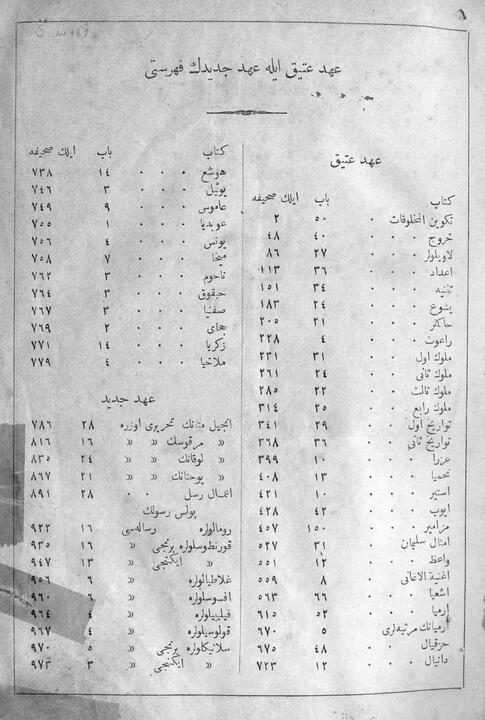 ٨
عهد عتیق ایله عهد جدیدك فهرستی
عهد عتیق
كتاب باب ایلك صحیفه
تكوین المخلوقات ٥٠ ٢
خروج ٤٠ ٤٨
لاویلولر ٢٧ ٨٦
اعداد ٣٦ ١١٣
تثنیه ٣٤ ١٥١
یشوع ٢٤ ١٨٣
حاكملر ٢١ ٢٠٥
راعوت ٤ ٢٢٨
ملوك اول ٣١ ٢٣١
ملوك ثانی ٢٤ ٢٦١
ملوك ثالث ٢٢ ٢٨٥
ملوك رابع ٢٥ ٣١٤
تواریخ اول ٢٩ ٣٤١
تواریخ ثانی ٣٦ ٣٦٨
عزرا ١٠ ٣٩٩
نحمیا ١٣ ٤٠٨
استیر ١٠ ٤٢١
ایوب ٤٢ ٤٢٨
مزامیر ١٥٠ ٤٥٧
امثال سلیمان ٣١ ٥٢٧
واعظ ١٢ ٥٥١
اغنیة الاغانی ٨ ٥٥٩
اشعیا ٦٦ ٥٦٣
ارمیا ٥٢ ٦١٥
ارمیانك مرثیه‌لری ٥ ٦٧٠
حزقیال ٤٨ ٦٧٥
دانیال ١٢ ٧٢٣
كتاب باب ایلك صحیفه
هوشع ١٤ ٧٣٨
یوئیل ٣ ٧٤٦
عاموس ٩ ٧٤٩
عوبدیا ١ ٧٥٥
یونس ٤ ٧٥٦
میخا ٧ ٧٥٨
ناحوم ٣ ٧٦٢
حبقوق ٣ ٧٦٤
صفنیا ٣ ٧٦٧
حجای ٢ ٧٦٩
زكریا ١٤ ٧٧١
ملاخیا ٤ ٧٧٩
عهد جدید
انجیل متانك تحریری اوزره ٢٨ ٧٨٦
» مرقوسك » » ١٦ ٨١٦
» لوقانك » » ٢٤ ٨٣٥
» یوحنانك » » ٢١ ٨٦٧
اعمال رسل ٢٨ ٨٩١
پولس رسولك
رومالولره رساله‌سی ١٦ ٩٢٢
قورنتوسلولره برنجی » ١٦ ٩٣٥
» ایكنجی » ١٣ ٩٤٧
غلاطیالولره » ٦ ٩٥٦
افسوسلولره » ٦ ٩٦٠
فیلیپیلولره » ٤ ٩٦٤
قولوسیلولره » ٤ ٩٦٧
سلانیكلولره برنجی » ٥ ٩٧٠
» ایكنجی » ٣ ٩٧٣